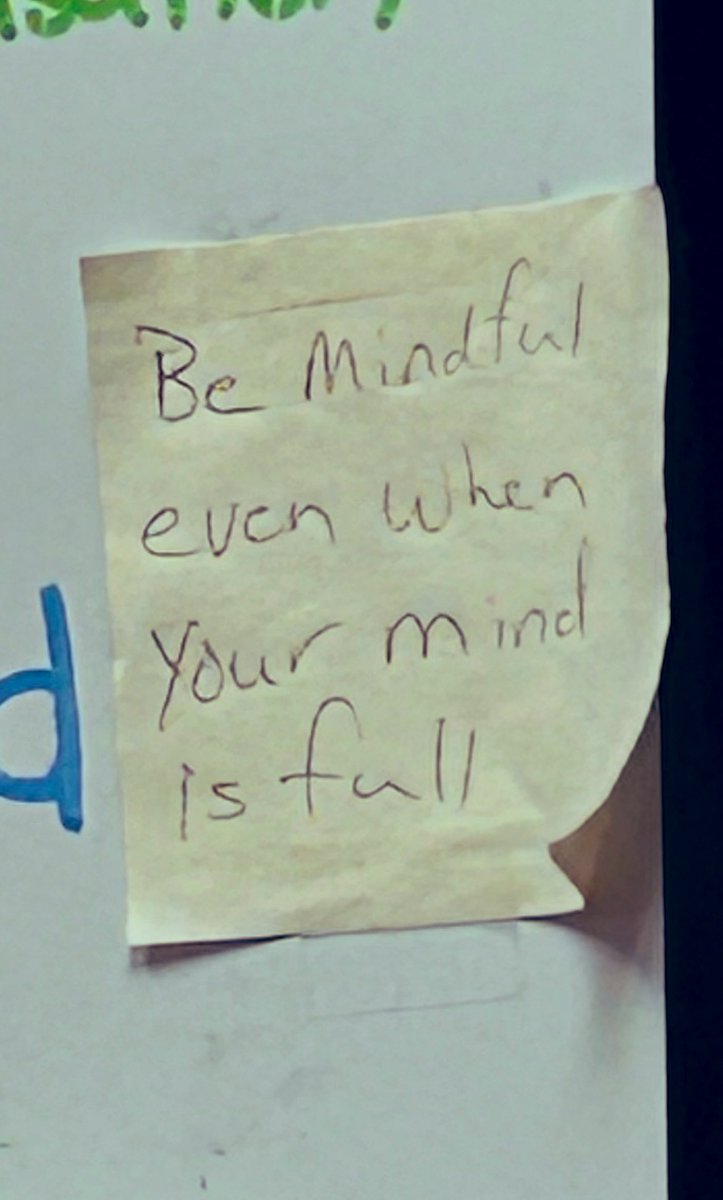 Be Mindful
even when
Your mind
is full
d